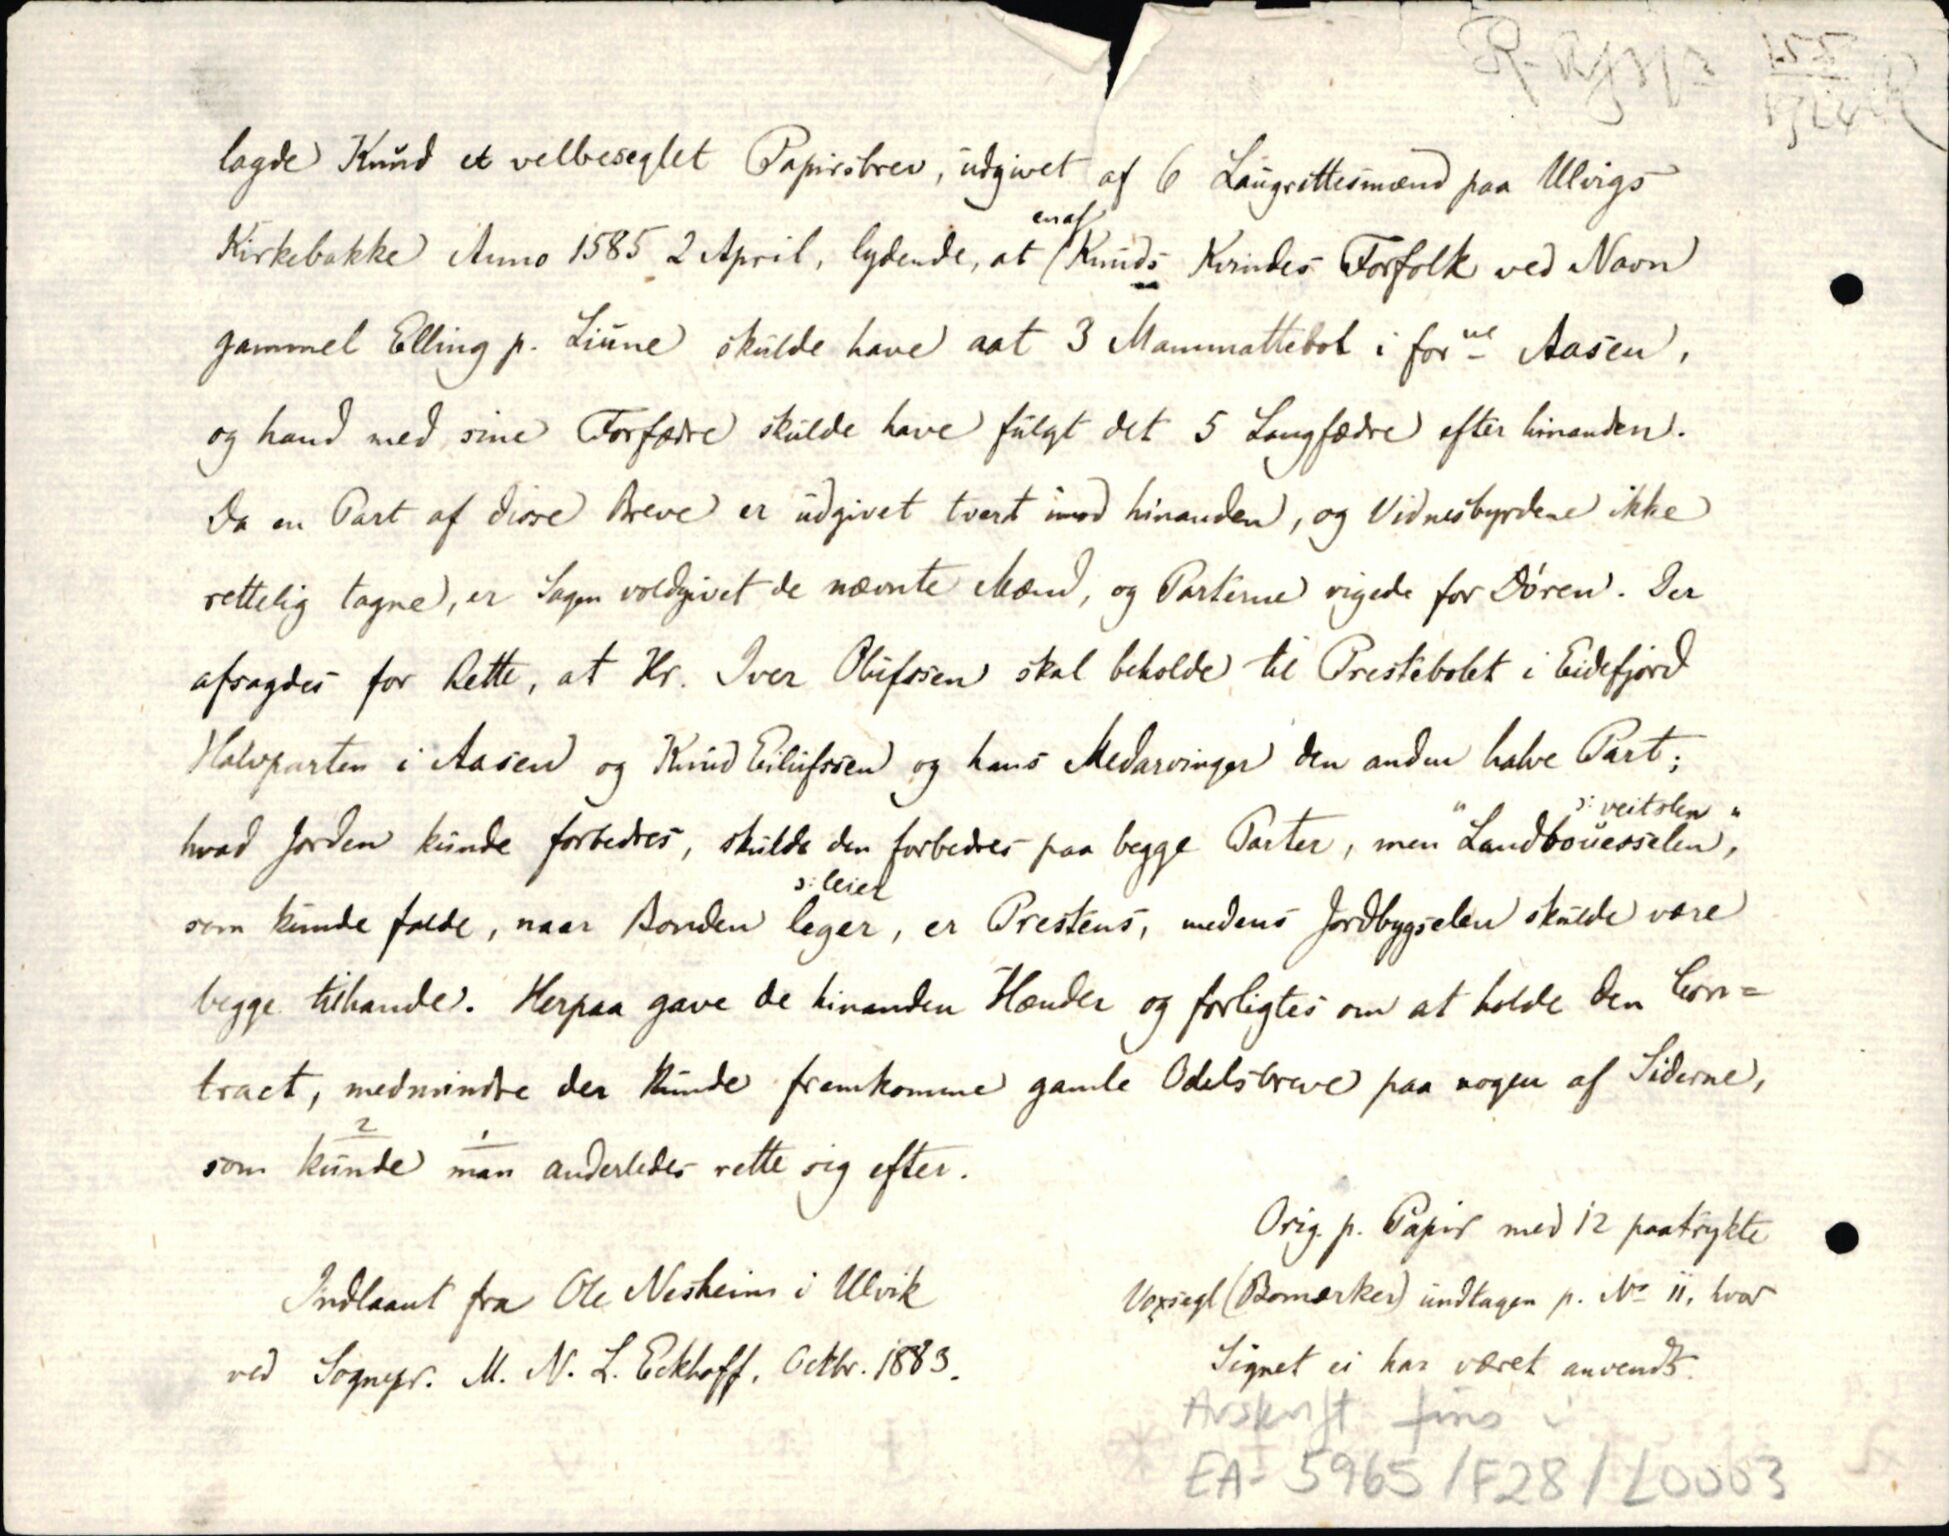 lagde Knud et velbeseglet Papirsbrev, udgivet af 6 Laugrettesmænd paa Ulvigs
Kirkebakke Anno 1585 2 April, lydende, at en af Knuds Kvindes Forfolk ved Navn
gammel Elling p. Liune skulde have aat 3 Mammattebol i forne Aasen,
og hand med sine Forfædre skulde have fulgt det 5 Langfædre efter hinanden.
Da en Part af disse Breve er udgivet tvert imod hinanden, og Vidnesbyrdene ikke
rettelig tagne, er Sagen voldgivet de nævnte Mænd, og Parterne vigede for Døren. Der
afsagdes for Rette, at Hr. Iver Olufssen skal beholde til Prestebolet i Eidefjord
Halvparten i Aasen og Knud Eilufssen og hans Medarvinger den anden halve Part;
hvad Jorden kunde forbedres, skulde den forbedres paa begge Parter, men "Landbouesselen",
ɔ: veitslen
ɔ: leier
som kunde falde, naar Bonden leger, er Prestens, medens Jordbygselen skulde være
begge tilhande. Herpaa gave de hinanden Hænder og forligtes om at holde den Con=
tract, medmindre der kunde fremkomme gamle Odelsbreve paa nogen af Siderne,
2 1
som kunde man anderledes rette sig efter.
Orig. p. Papir med 12 paatrykte
Voxsegl (Bomærker) undtagen p. No 11, hvor
Signet ei har været anvendt.
Indlaant fra Ole Nesheim i Ulvik
ved Sognepr. M. N. L. Eckhoff, Octbr. 1883.
Avskrift fins i
EA-5965/F28/L0003